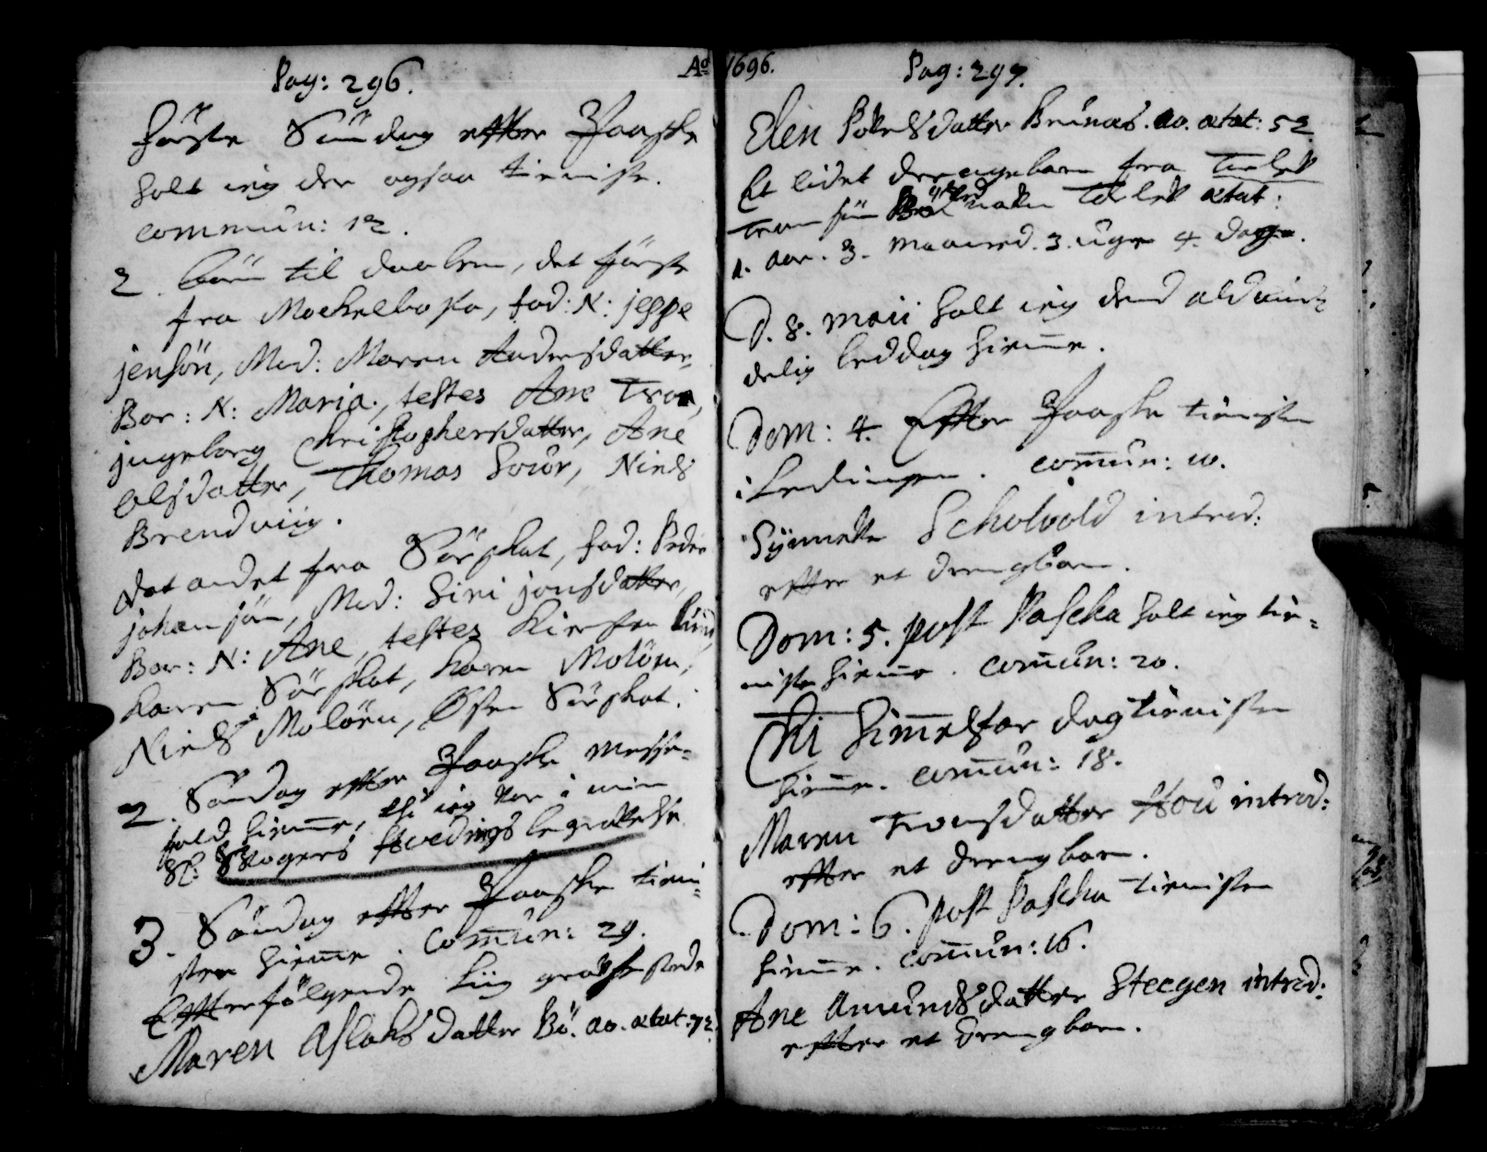 Pag: 296.
Aº 1696.
förste Sündag effter Paaske
holt ieg der ogsaa tieniste.
commun: 12.
2. börn til daaben, det förste
fra Mochelbosta, fad: N: jeppe
jensön, Mod: Maren Andersdatter,
Bar: N: Maria, testes Ane Tron,
jngeborg Christophersdatter, Ane
Olsdatter, Thomas Souör, Niels
Brendviig.
Det andet fra Sörskat, fad: Peder
johansön, Mod: Siri jonsdatter,
Bar: N: Ane, testes Kirsten
Karen Sörskat, Karen Molöen,
Niels Molöen, Osten Sörskat.
2. Söndag effter Paaske messe-
fald hiemme, thi ieg var i min
Sl. Svogers Hvedings begravelse
3. Söndag effter Paaske tieni-
sten hiemme. Comun: 29.
Effterfölgende liig gravfestede
Maren Aslaksdatter Bö. ao. ætat: 72.
Pag: 297.
Elen Povelsdatter Brunæs. ao. ætat: 52
Et lidet drengebarn fra
ætat:
1. aar. 3. maaned. 3. uger 4. dage.
D. 8. Maii holt ieg dend aldmin-
delig beddag hiemme.
Dom: 4. Effter Paaske tienisten
i Ledingen. comun: 10.
Synneke Scholvold introd:
effter et drengbarn.
Dom: 5. post Pascha holt ieg tie-
nisten hiemme. comun: 20.
Chi himmelfar dag tienisten
hiemme. comun: 18.
Maren Tronsdatter Hou introd:
effter et drengbarn.
Dom: 6. post Pascha tienisten
hiemme. comun: 16.
Ane Amundsdatter Steegen introd:
effter et drengbarn.